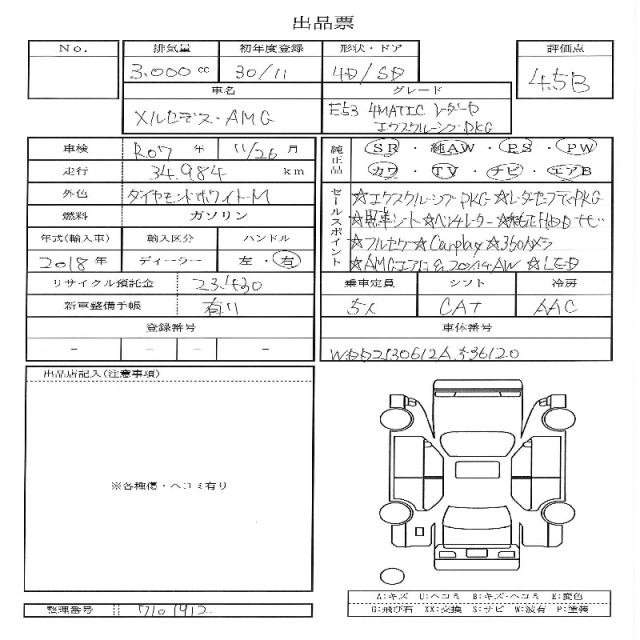 出品票
No. 排気量 初年度登録 形状・ドア 評価点
3.000cc 30/11 4D/SD 4.5B
車名 グレード
メルセデス・AMG E53 4MATIC レーダーセ
エクスクルーシブPKG
車検 R07年 11/26月
走行 34.984 km
外色 ダイヤモンドホワイトM
燃料 ガソリン
年式(輸入車) 輸入区分 ハンドル
2018年 ディーラー 左・右
リサイクル預託金 23.430
新車整備手帳 有り
登録番号
－ － － －
純正品 SR・純AW・PS・PW
カワ・TV・ナビ・エアB
セールスポイント ☆エクスクルーシブPKG ☆レーダーセーフティPKG
☆黒革シート ☆ベンチレーター ☆純正HDDナビ
☆フルセグ ☆Carplay ☆360カメラ
☆AMGエアロ& 20インチAW ☆LED
乗車定員 シフト 冷房
5人 CAT AAC
車体番号
出品店記入(注意事項)
※各種傷・ヘコミ有り
A:キズ U:ヘコミ B:キズ・ヘコミ E:変色
G:飛び石 XX:交換 S:サビ W:波有 P:塗装
整理番号 7101912